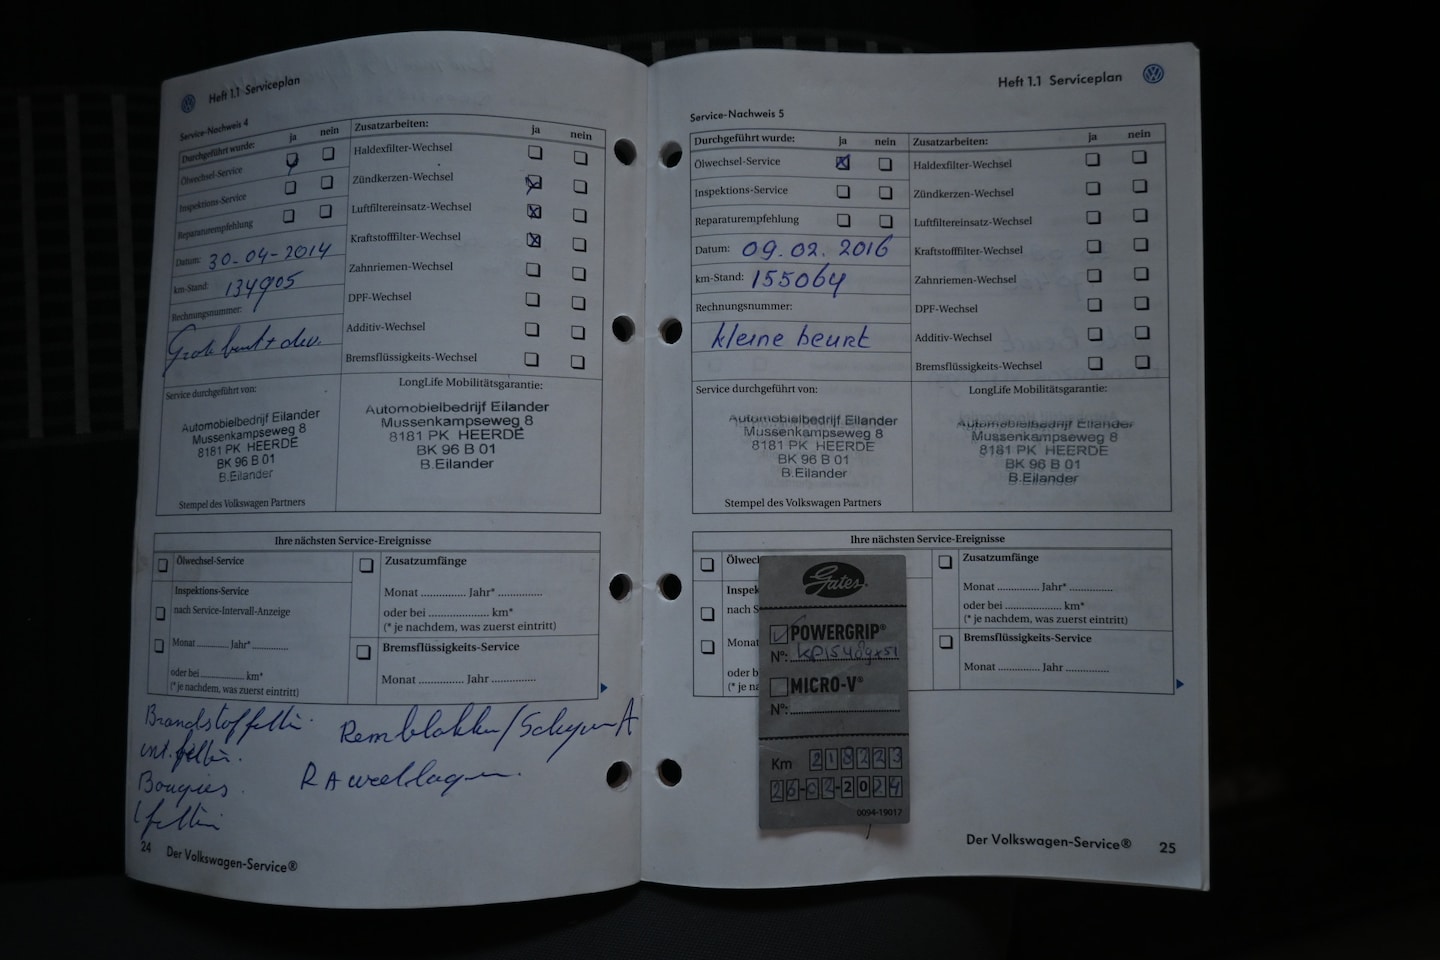 Heft 1.1 Serviceplan
Service-Nachweis 4
Durchgeführt wurde: ja nein
Ölwechsel-Service
Inspektions-Service
Reparaturempfehlung
Datum: 30-04-2014
km-Stand: 134905
Rechnungsnummer:
Zusatzarbeiten: ja nein
Haldexfilter-Wechsel
Zündkerzen-Wechsel
Luftfiltereinsatz-Wechsel
Kraftstofffilter-Wechsel
Zahnriemen-Wechsel
DPF-Wechsel
Additiv-Wechsel
Bremsflüssigkeits-Wechsel
Service durchgeführt von:
Automobielbedrijf Eilander
Mussenkampseweg 8
8181 PK HEERDE
BK 96 B 01
B.Eilander
Stempel des Volkswagen Partners
LongLife Mobilitätsgarantie:
Automobielbedrijf Eilander
Mussenkampseweg 8
8181 PK HEERDE
BK 96 B 01
B.Eilander
Ihre nächsten Service-Ereignisse
Ölwechsel-Service
Inspektions-Service
nach Service-Intervall-Anzeige
Monat ........... Jahr* ............
oder bei ............... km*
(* je nachdem, was zuerst eintritt)
Zusatzumfänge
Monat .............. Jahr* ..............
oder bei ................... km*
(* je nachdem, was zuerst eintritt)
Bremsflüssigkeits-Service
Monat .............. Jahr ..............
Remblokken/
Bougies
24 Der Volkswagen-Service®
Heft 1.1 Serviceplan
Service-Nachweis 5
Durchgeführt wurde: ja nein
Ölwechsel-Service
Inspektions-Service
Reparaturempfehlung
Datum: 09.02.2016
km-Stand: 155064
Rechnungsnummer:
kleine beurt
Zusatzarbeiten: ja nein
Haldexfilter-Wechsel
Zündkerzen-Wechsel
Luftfiltereinsatz-Wechsel
Kraftstofffilter-Wechsel
Zahnriemen-Wechsel
DPF-Wechsel
Additiv-Wechsel
Bremsflüssigkeits-Wechsel
Service durchgeführt von:
Automobielbedrijf Eilander
Mussenkampseweg 8
8181 PK HEERDE
BK 96 B 01
B.Eilander
Stempel des Volkswagen Partners
LongLife Mobilitätsgarantie:
Automobielbedrijf Eilander
Mussenkampseweg 8
8181 PK HEERDE
BK 96 B 01
B.Eilander
Ihre nächsten Service-Ereignisse
Ölwec
Inspek
nach S
Monat
oder b
(* je na
Gates
POWERGRIP®
N°:
MICRO-V®
N°: ....................
Km 218223
26-02-2024
0094-19017
Zusatzumfänge
Monat .............. Jahr* ..............
oder bei ................... km*
(* je nachdem, was zuerst eintritt)
Bremsflüssigkeits-Service
Monat .............. Jahr ..............
Der Volkswagen-Service® 25